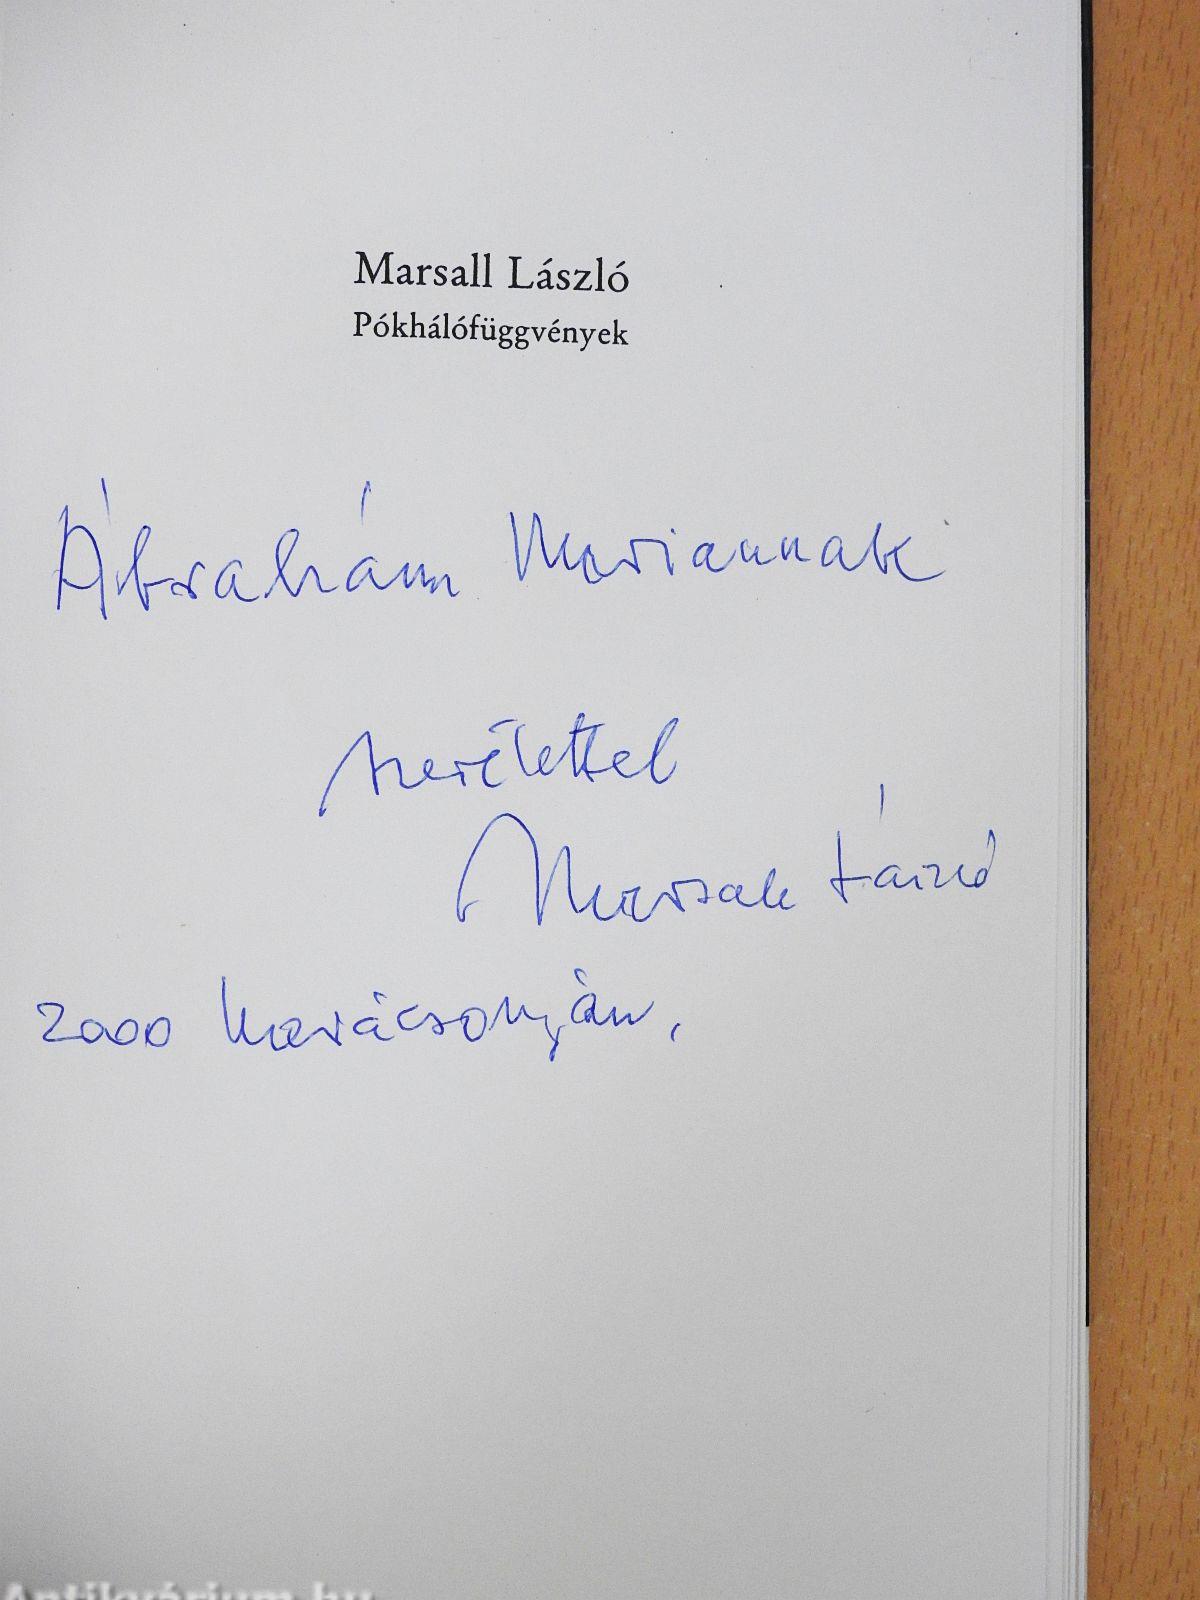 Marsall László
Pókhálófüggvények
Ábrahám Mariannak
szeretettel
Marsall László
2000 karácsonyán,
Antikvárium.hu